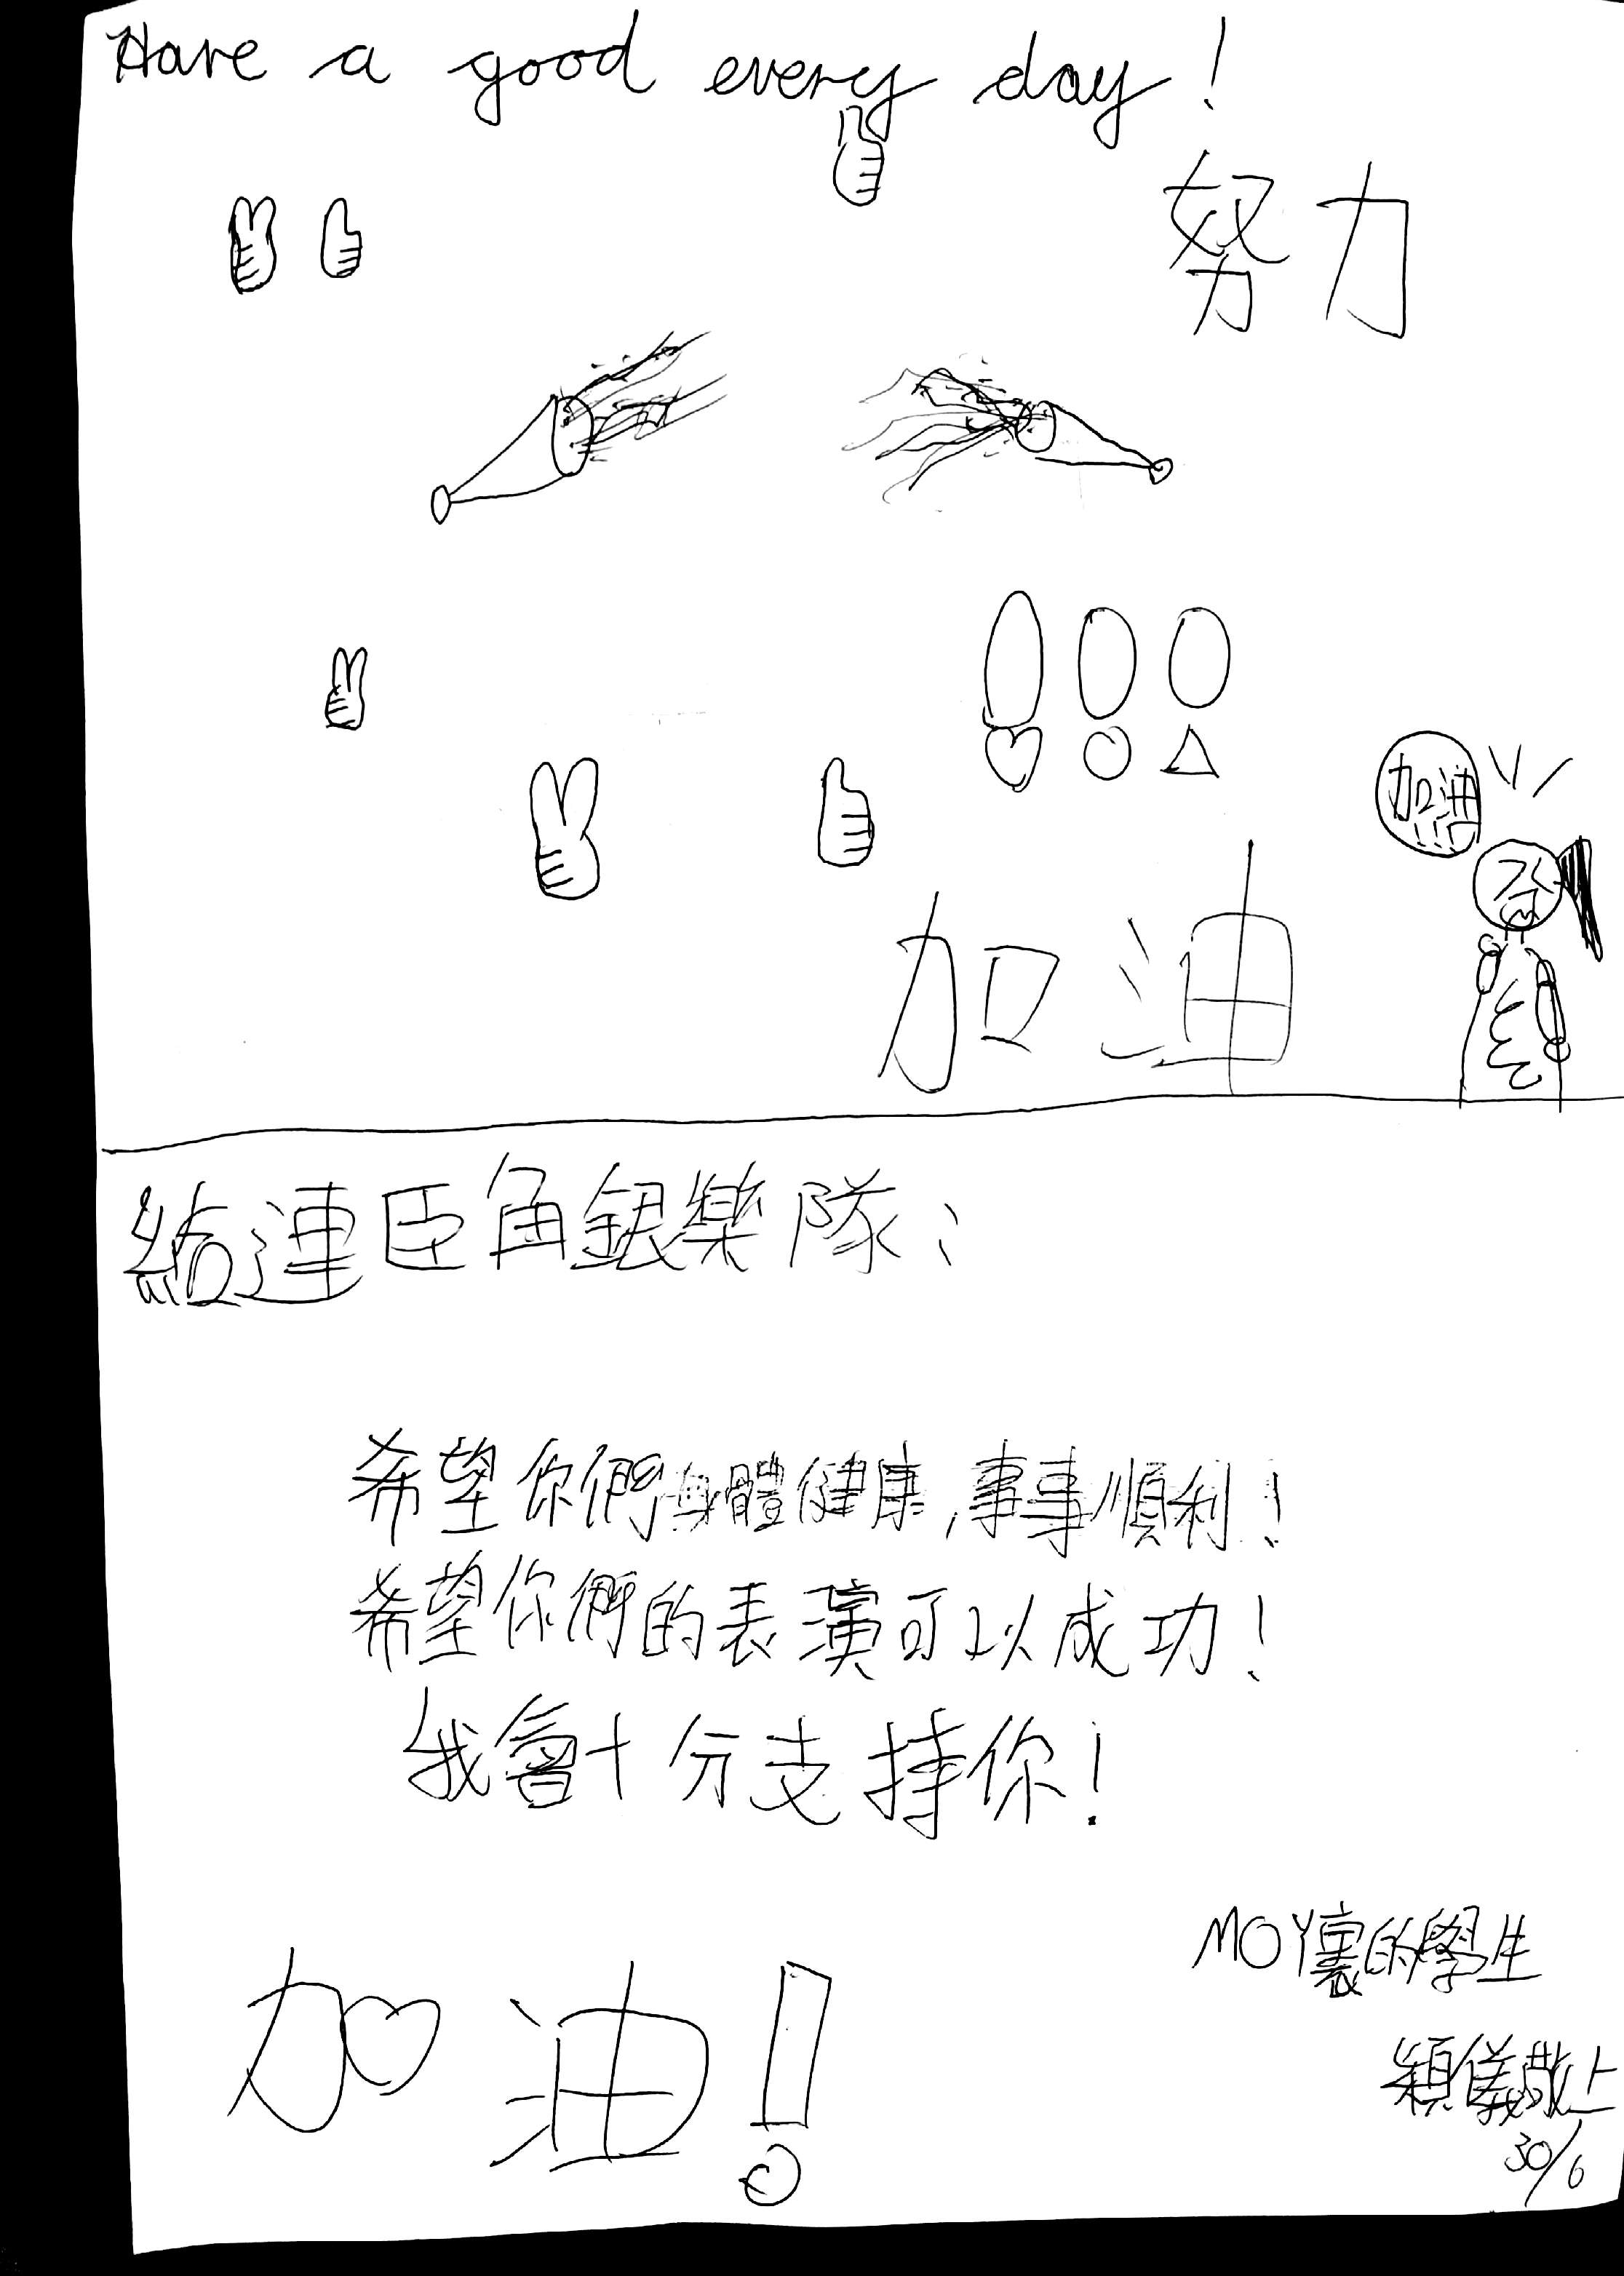 Have a good every day!
努力
加油
加油
給連臣角銀樂隊：
希望你們身體健康，事事順利！
希望你們的表演可以成功！
我會十分支持你！
MOY裏的學生
加油！
穎儀敬上
30/6